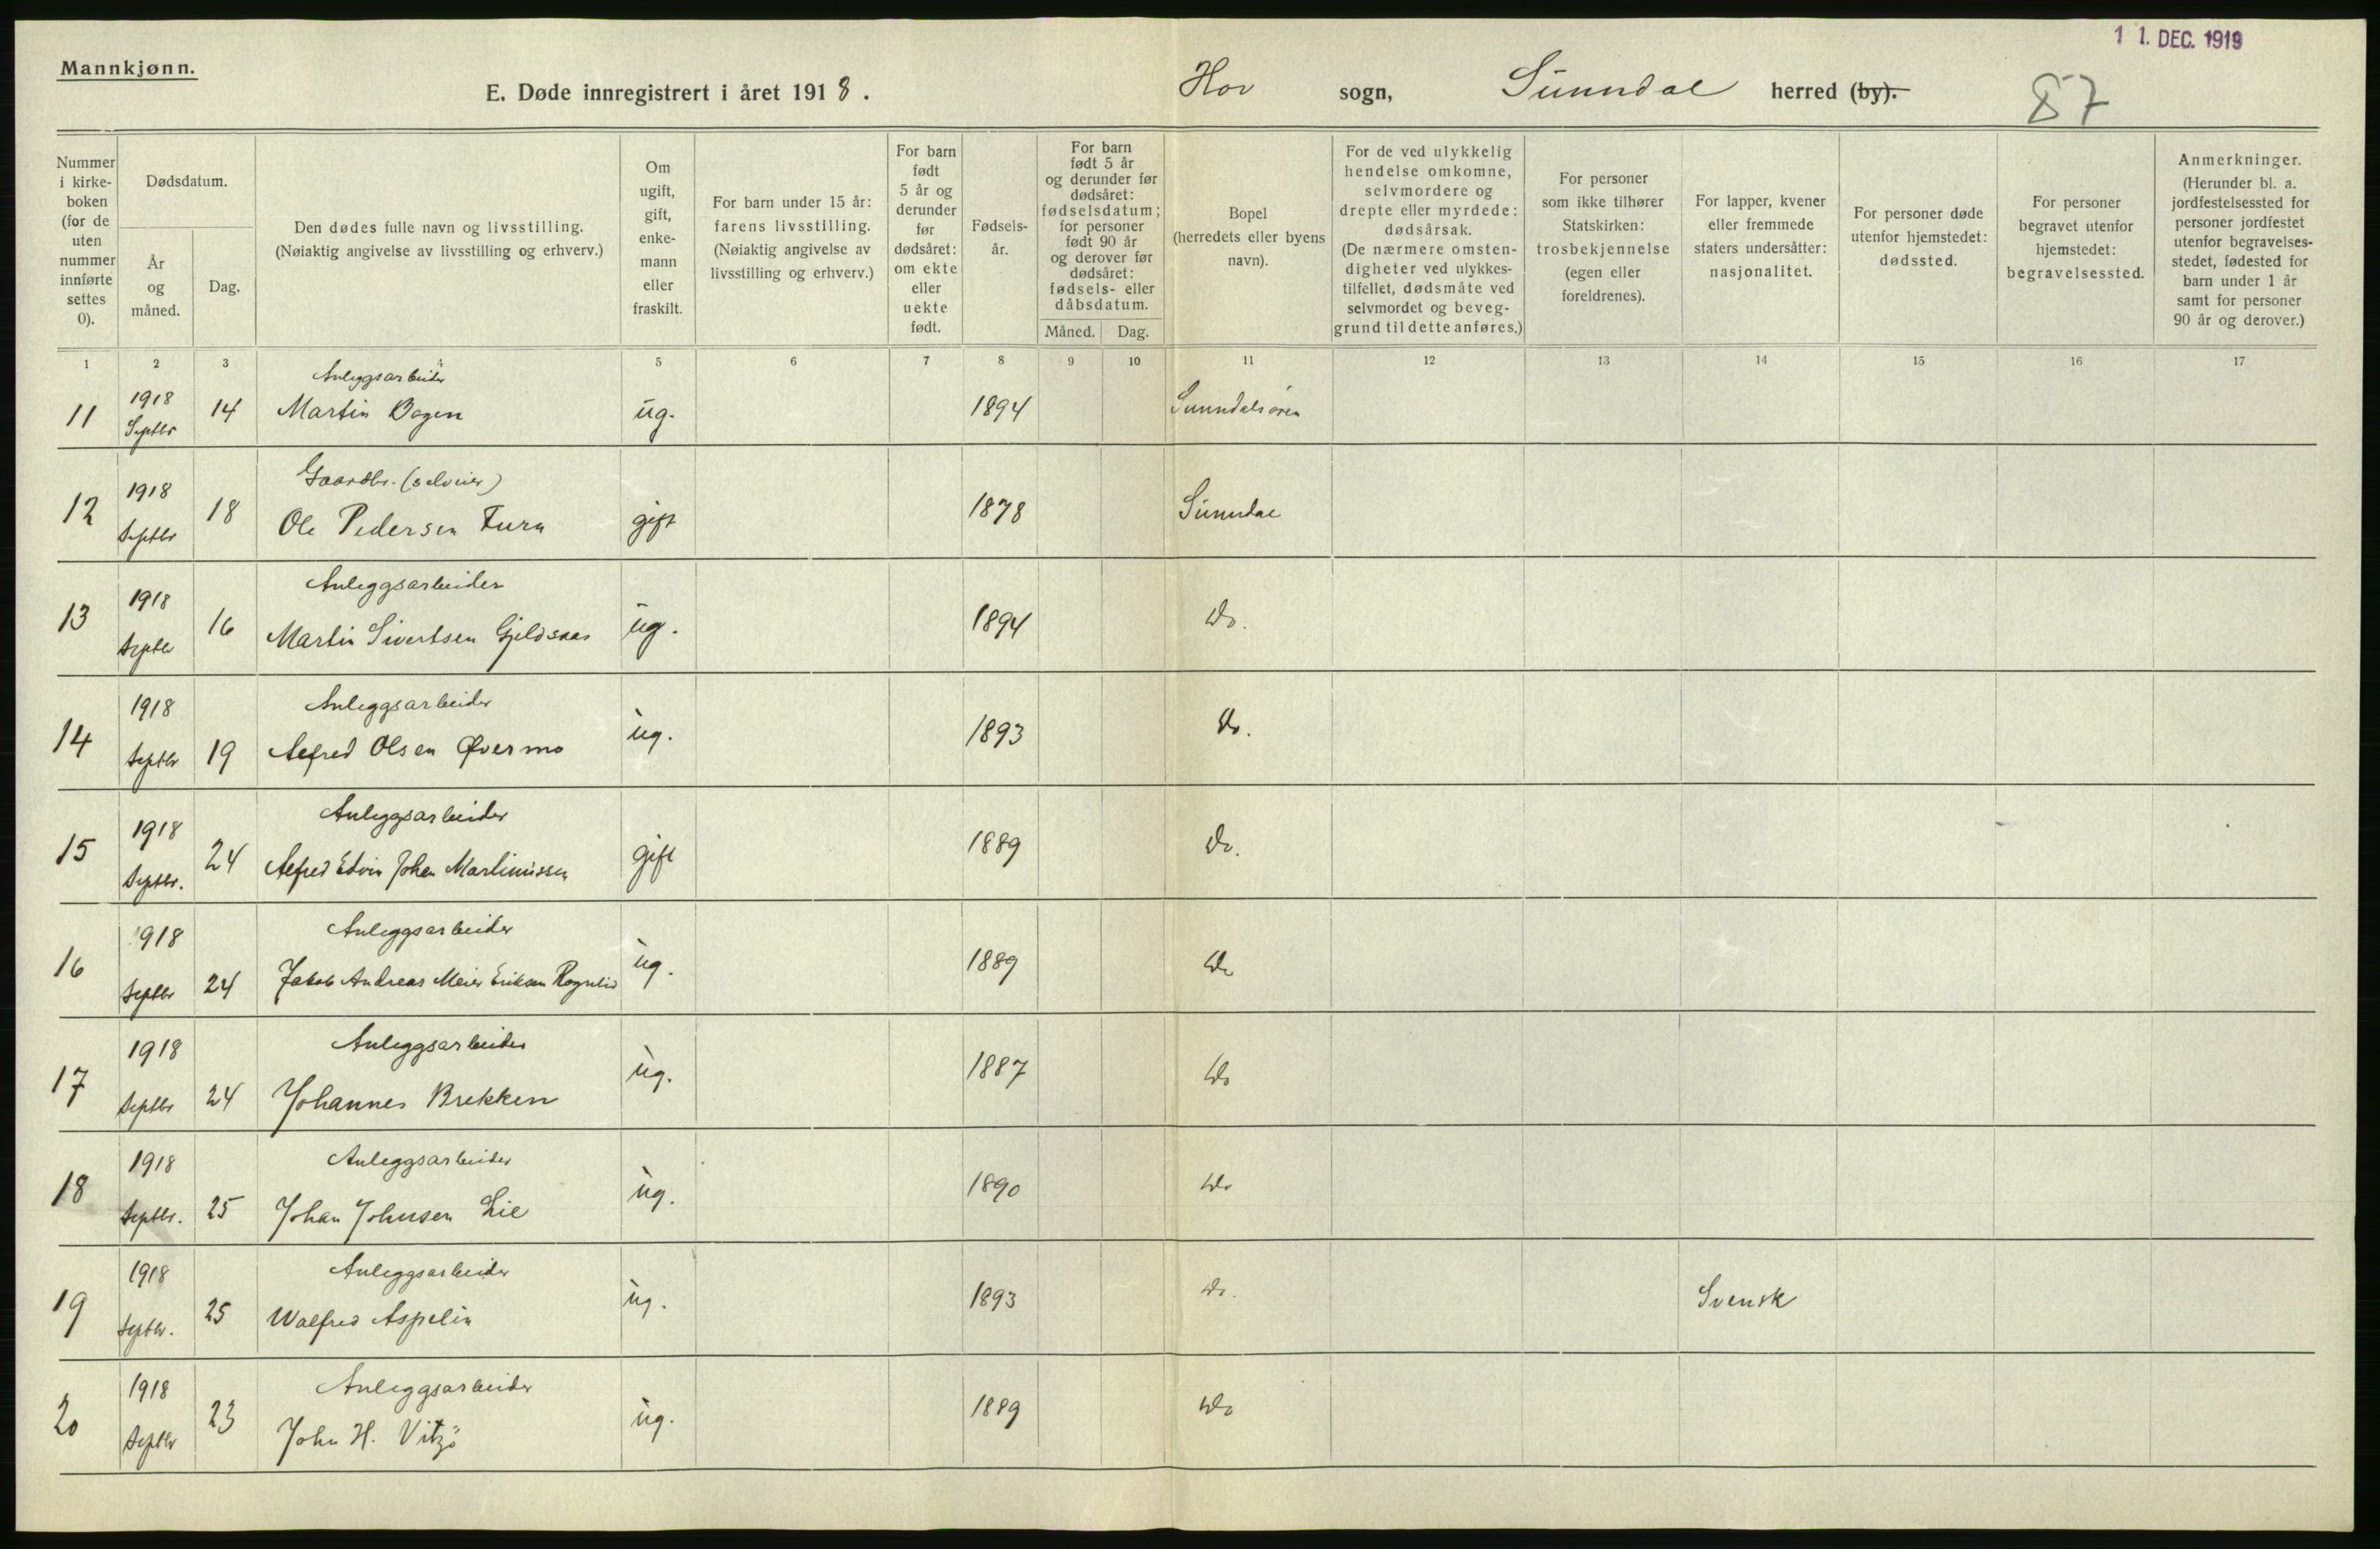 1 1. DEC. 1919
Mannkjønn.
E. Døde innregistrert i året 1918. Hov sogn, Sunndal herred (by). 87
Nummer i kirke- boken (for de uten nummer innførte settes 0).
Dødsdatum.
År og måned.
Dag.
Den dødes fulle navn og livsstilling.
(Nøiaktig angivelse av livsstilling og erhverv.)
Om ugift, gift, enke- mann eller fraskilt.
For barn under 15 år: farens livsstilling. (Nøiaktig angivelse av livsstilling og erhverv.)
For barn født 5 år og derunder før dødsåret: om ekte eller uekte født.
Fødsels- år.
For barn født 5 år og derunder før dødsåret: fødselsdatum; for personer født 90 år og derover før dødsåret: fødsels- eller dåbsdatum.
Måned. Dag.
Bopel (herredets eller byens navn).
For de ved ulykkelig hendelse omkomne, selvmordere og drepte eller myrdede: dødsårsak. (De nærmere omsten- digheter ved ulykkes- tilfellet, dødsmåte ved selvmordet og beveg- grund til dette anføres.)
For personer som ikke tilhører Statskirken: trosbekjennelse (egen eller foreldrenes).
For lapper, kvener eller fremmede staters undersåtter: nasjonalitet.
For personer døde utenfor hjemstedet: dødssted.
For personer begravet utenfor hjemstedet: begravelsessted.
Anmerkninger. (Herunder bl. a. jordfestelsessted for personer jordfestet utenfor begravelses- stedet, fødested for barn under 1 år samt for personer 90 år og derover.)
1 2 3 4 5 6 7 8 9 10 11 12 13 14 15 16 17
1918 Anleggsarbeider
11 Septbr 14 Martin Bogen ug. 1894 Sunndalsøren
1918 Gaardbr. (selveier)
12 Septbr 18 Ole Pedersen Furu gift 1878 Sunndal
1918 Anleggsarbeider
13 Septbr 16 Martin Sivertsen Gjeldsnes ug. 1894 Do.
1918 Anleggsarbeider
14 Septbr 19 Alfred Olsen Øvermo ug. 1893 Do.
1918 Anleggsarbeider
15 Septbr. 24 Alfred Edvin Johan Martinussen gift 1889 Do.
1918 Anleggsarbeider
16 Septbr 24 Jakob Andreas Meier Eriksen Rognlid ug. 1889 Do
1918 Anleggsarbeider
17 Septbr 24 Johannes Brekken ug. 1887 Do
1918 Anleggsarbeider
18 Septbr. 25 Johan Johnsen Lie ug. 1890 Do
1918 Anleggsarbeider
19 Septbr. 25 Walfred Aspelin ug. 1893 Do. Svensk
1918 Anleggsarbeider
20 Septbr 23 John H. Vitzø ug. 1889 Do